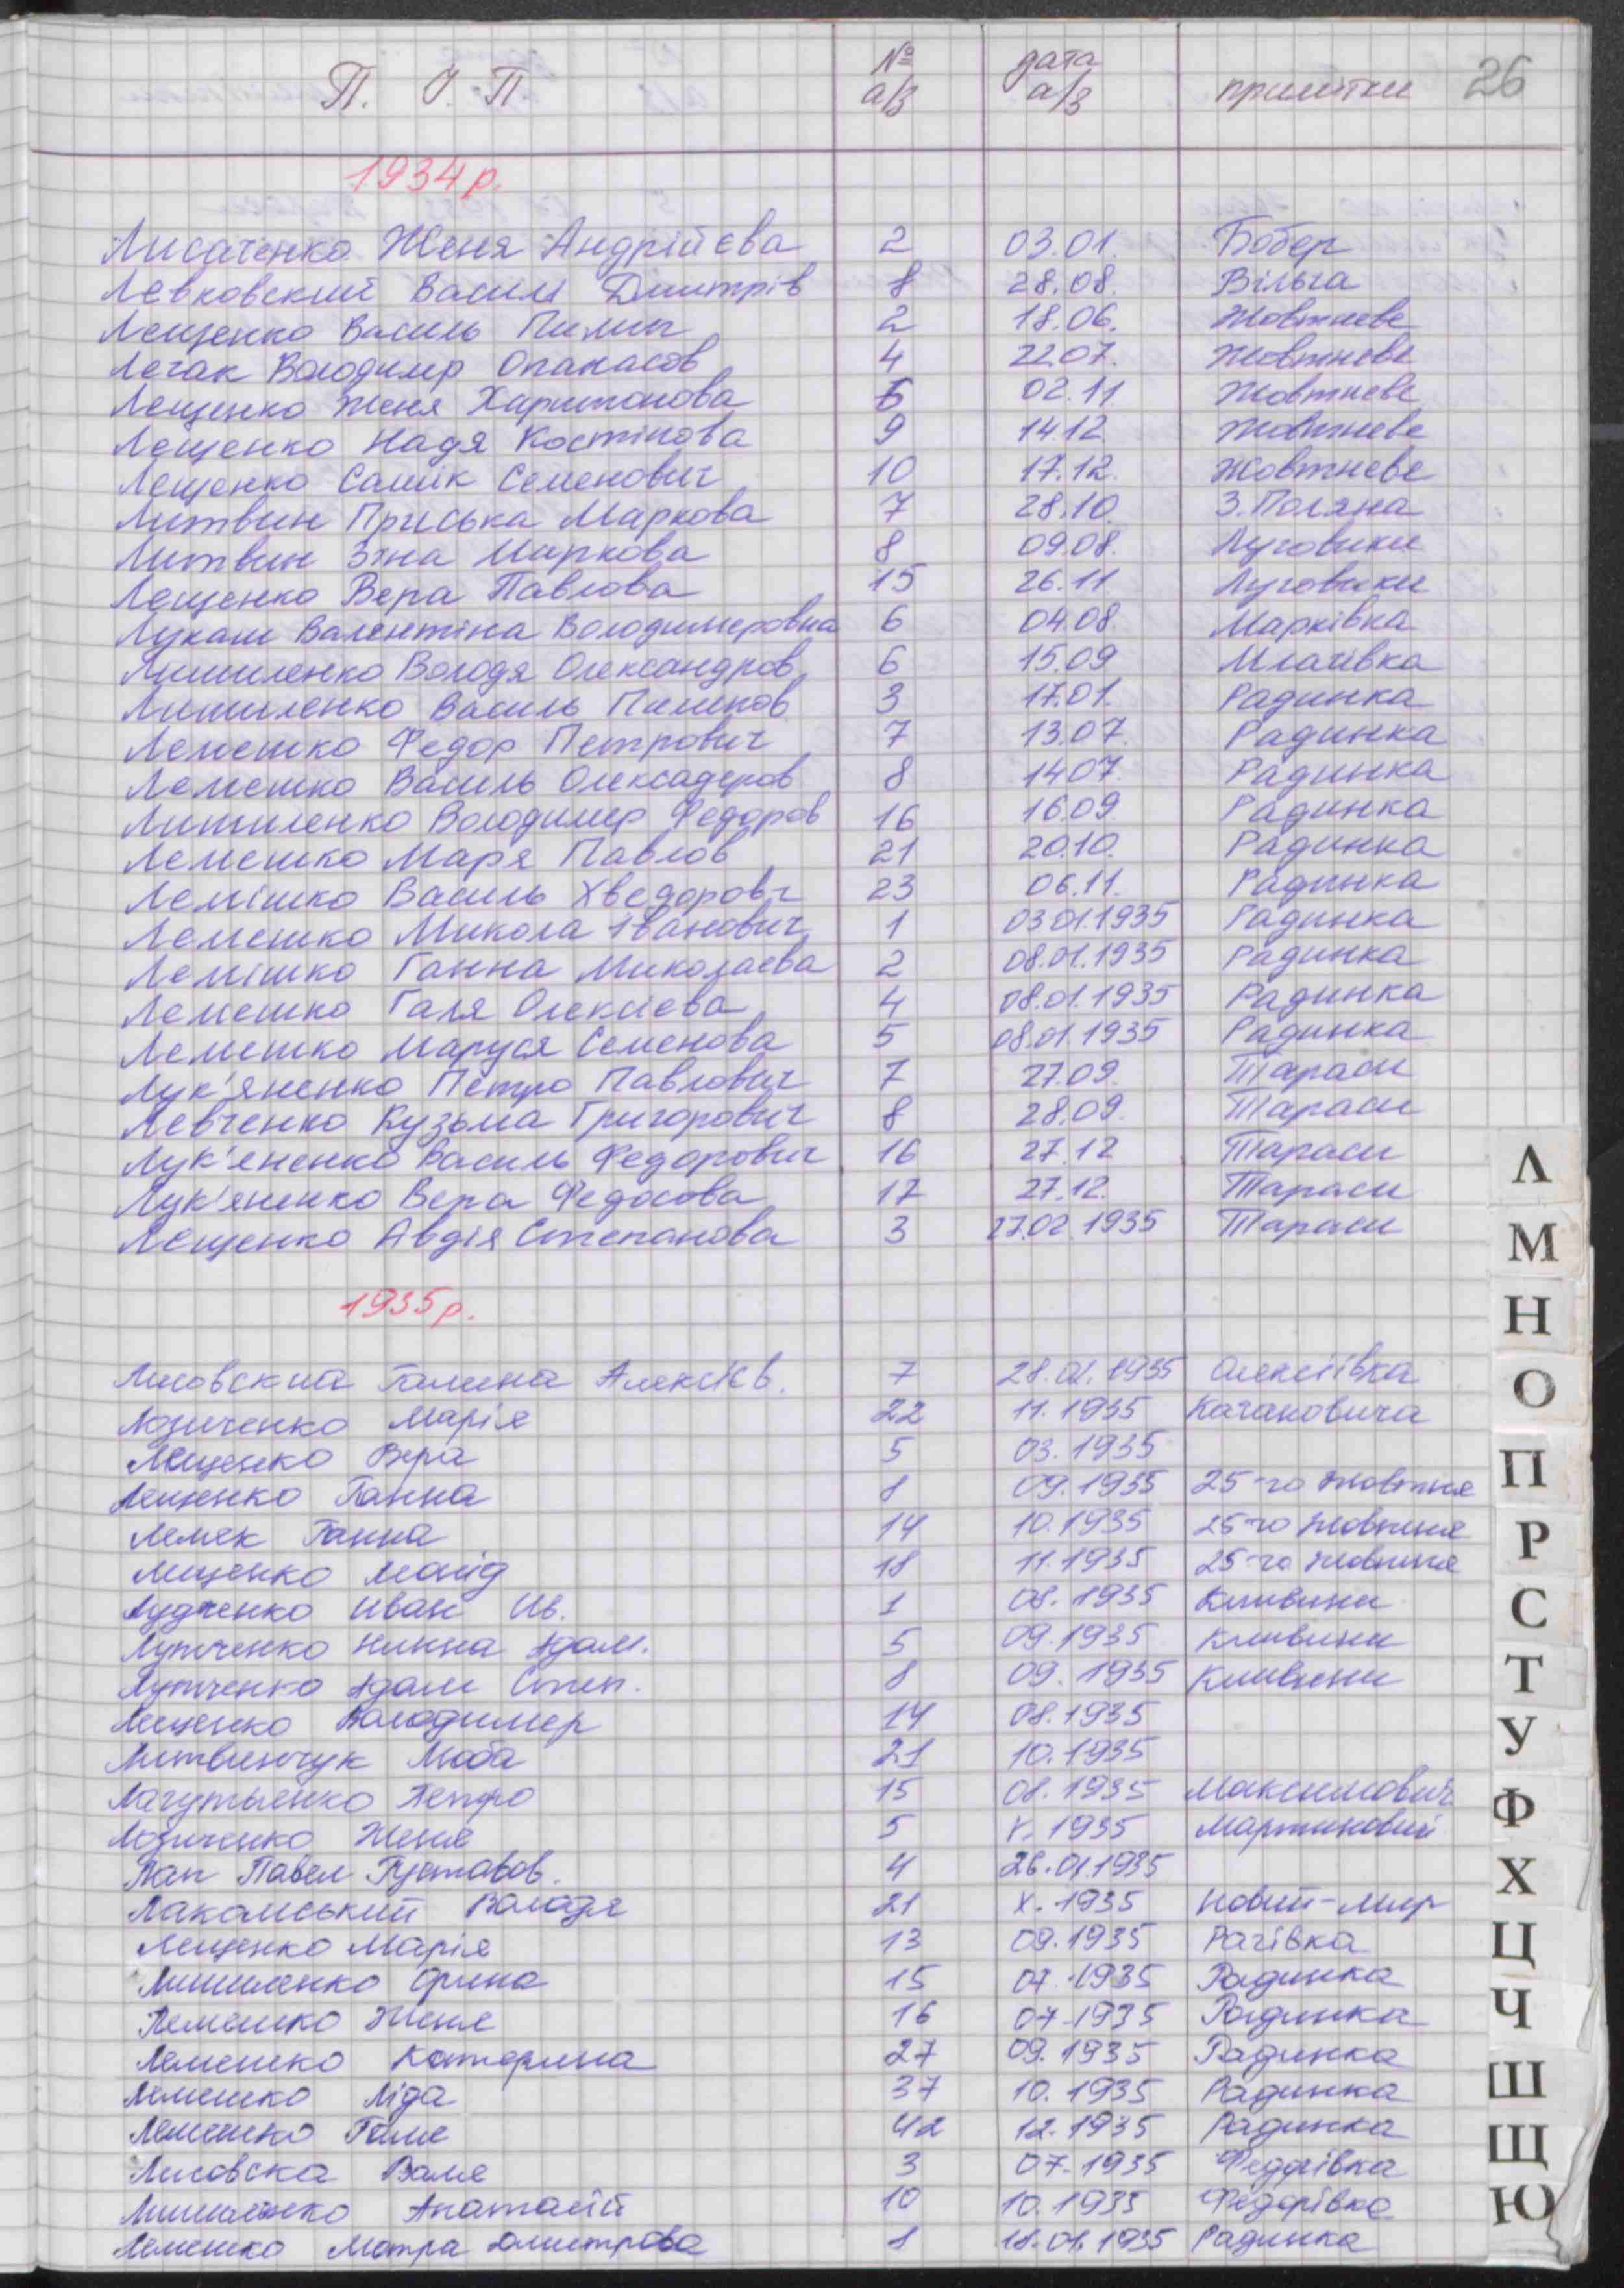 П. І. П. № а/з дата а/з примітки 26
1934 р.
Лисаченко Женя Андрійєва 2 03.01. Бобер
Левковский Василь Дмитрів 8 28.08. Вільча
Лещенко Василь Пилип 2 18.06. Жовтневе
Легак Володимир Опанасов 4 22.07. Жовтневе
Лещенко Женя Харитонова 6 02.11 Жовтневе
Лещенко Надя Костінова 9 14.12 Жовтневе
Лещенко Самік Семенович 10 17.12. Жовтневе
Литвин Приська Маркова 7 28.10. З. Поляна
Литвин Зіна Миркова 8 09.08. Луговики
Лещенко Вера Павлова 15 26.11 Луговики
Лукаш Валентіна Володимеровна 6 04.08 Марківка
Лишиленко Володя Олександров 6 15.09 Млачівка
Лишиленко Василь Пилипов 3 17.01. Радинка
Лемешко Федор Петрович 7 13.07. Радинка
Лемешко Василь Олексадеров 8 14.07. Радинка
Лишиленко Володимер Федоров 16 16.09. Радинка
Лемешко Маря Павлов 21 20.10. Радинка
Лемішко Василь Хведорович 23 06.11. Радинка
Лемешко Микола Іванович 1 03.01.1935 Радинка
Лемішко Ганна Миколаєва 2 08.01.1935 Радинка
Лемешко Галя Олексієва 4 08.01.1935 Радинка
Лемешко Маруся Семенова 5 08.01.1935 Радинка
Лук'яненко Петро Павлович 7 27.09. Тараси
Левченко Кузьма Григорович 8 28.09. Тараси
Лук'ененко Василь Федорович 16 27.12 Тараси
Лук'яненко Вера Федосова 17 27.12. Тараси
Лещенко Авдія Степанова 3 27.02.1935 Тараси
1935 р.
Галина 7 1935 Олексіївка
Марія 22 11.1935 Кагановича
Лещенко Вера 5 03.1935
Лещенко Ганна 8 09.1935 25-го Жовтня
Лемек Ганна 14 10.1935 25-го Жовтня
18 11.1935 25-го Жовтня
Лудченко Иван Ив. 1 08.1935 Кливини
Лутченко Нинна Адам. 5 09.1935 Кливини
Лутченко Адам Степ. 8 09.1935 Кливини
Лещенко Володимер 14 08.1935
Литвинчук Люба 21 10.1935
Петро 15 08.1935 Максимович
Женя 5 1935 Мартиновий
Лап Павел Густавов. 4 26.01.1935
Володя 21 X.1935 Новий-Мир
Лещенко Марія 13 09.1935 Рагівка
Лишиленко Орина 15 07.1935 Радинка
Лемешко Женя 16 07.1935 Радинка
Лемешко Катерина 27 09.1935 Радинка
Лемешко Ліда 37 10.1935 Радинка
Лемешко Галя 42 12.1935 Радинка
Лисовска Валя 3 07.1935 Федорівка
Лишиленко Анатолій 10 10.1935 Федорівка
Лемешко Мотра Дмитрова 1 18.01.1935 Радинка
Л
М
Н
О
П
Р
С
Т
У
Ф
Х
Ц
Ч
Ш
Щ
Ю